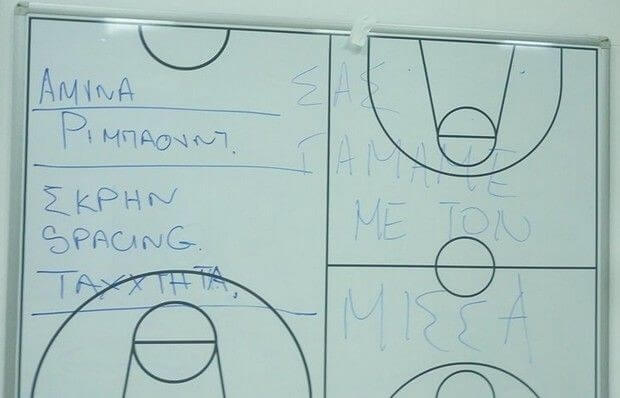 ΑΜΥΝΑ
ΡΙΜΠΑΟΥΝΤ.
ΣΚΡΗΝ
SPACING.
ΤΑΧΧΤΗΤΑ.
ΣΑΣ
ΓΑΜΑΜΕ
ΜΕ ΤΟΝ
ΜΙΣΣΑ